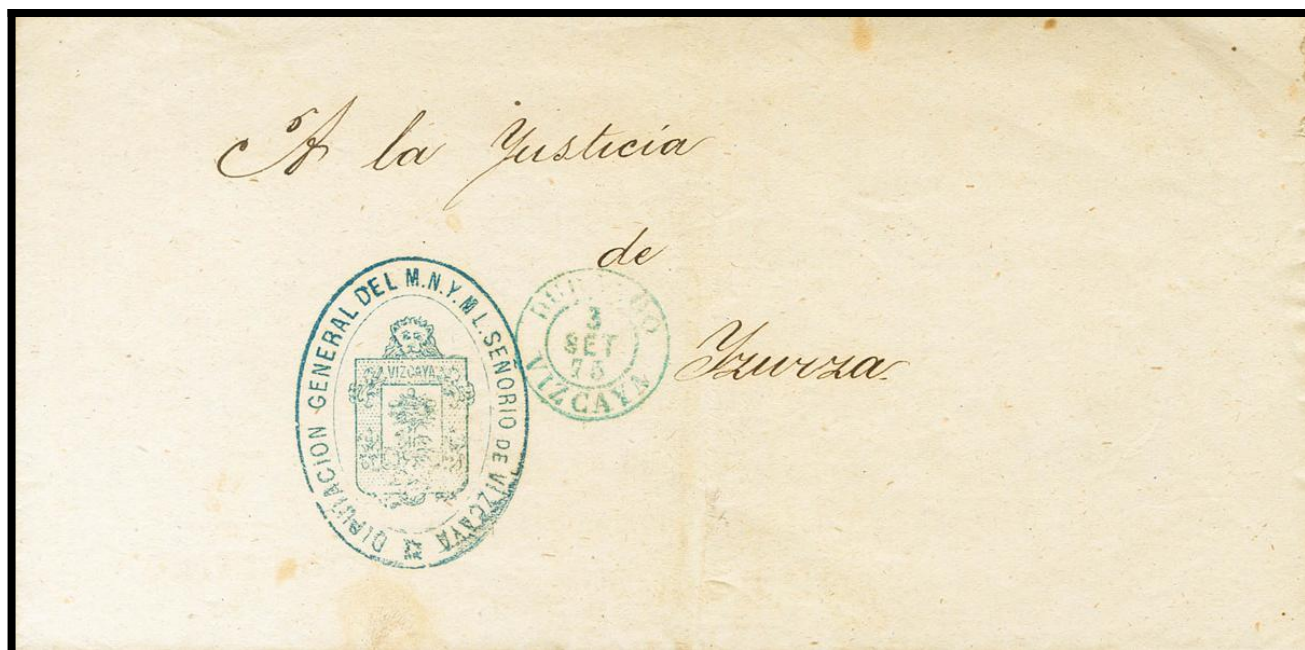 A la Justicia
de
Yzurza
DIPUTACION GENERAL DEL M.N.Y.M L. SEÑORIO DE VIZCAYA
VIZCAYA
DURANGO
3
SET
75
VIZCAYA